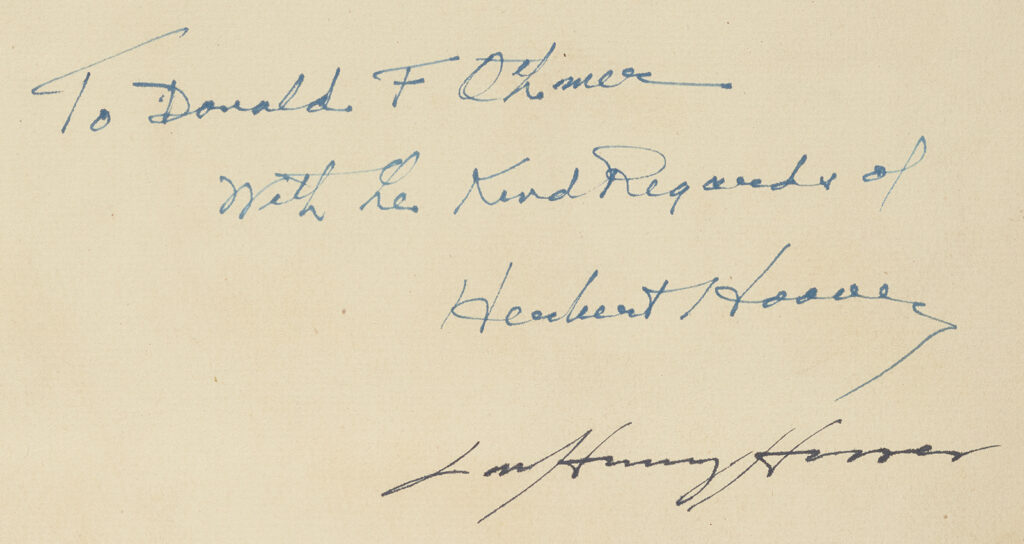 To Donald F Othmer
With the Kind Regards of
Herbert Hoover
Lou Henry Hoover